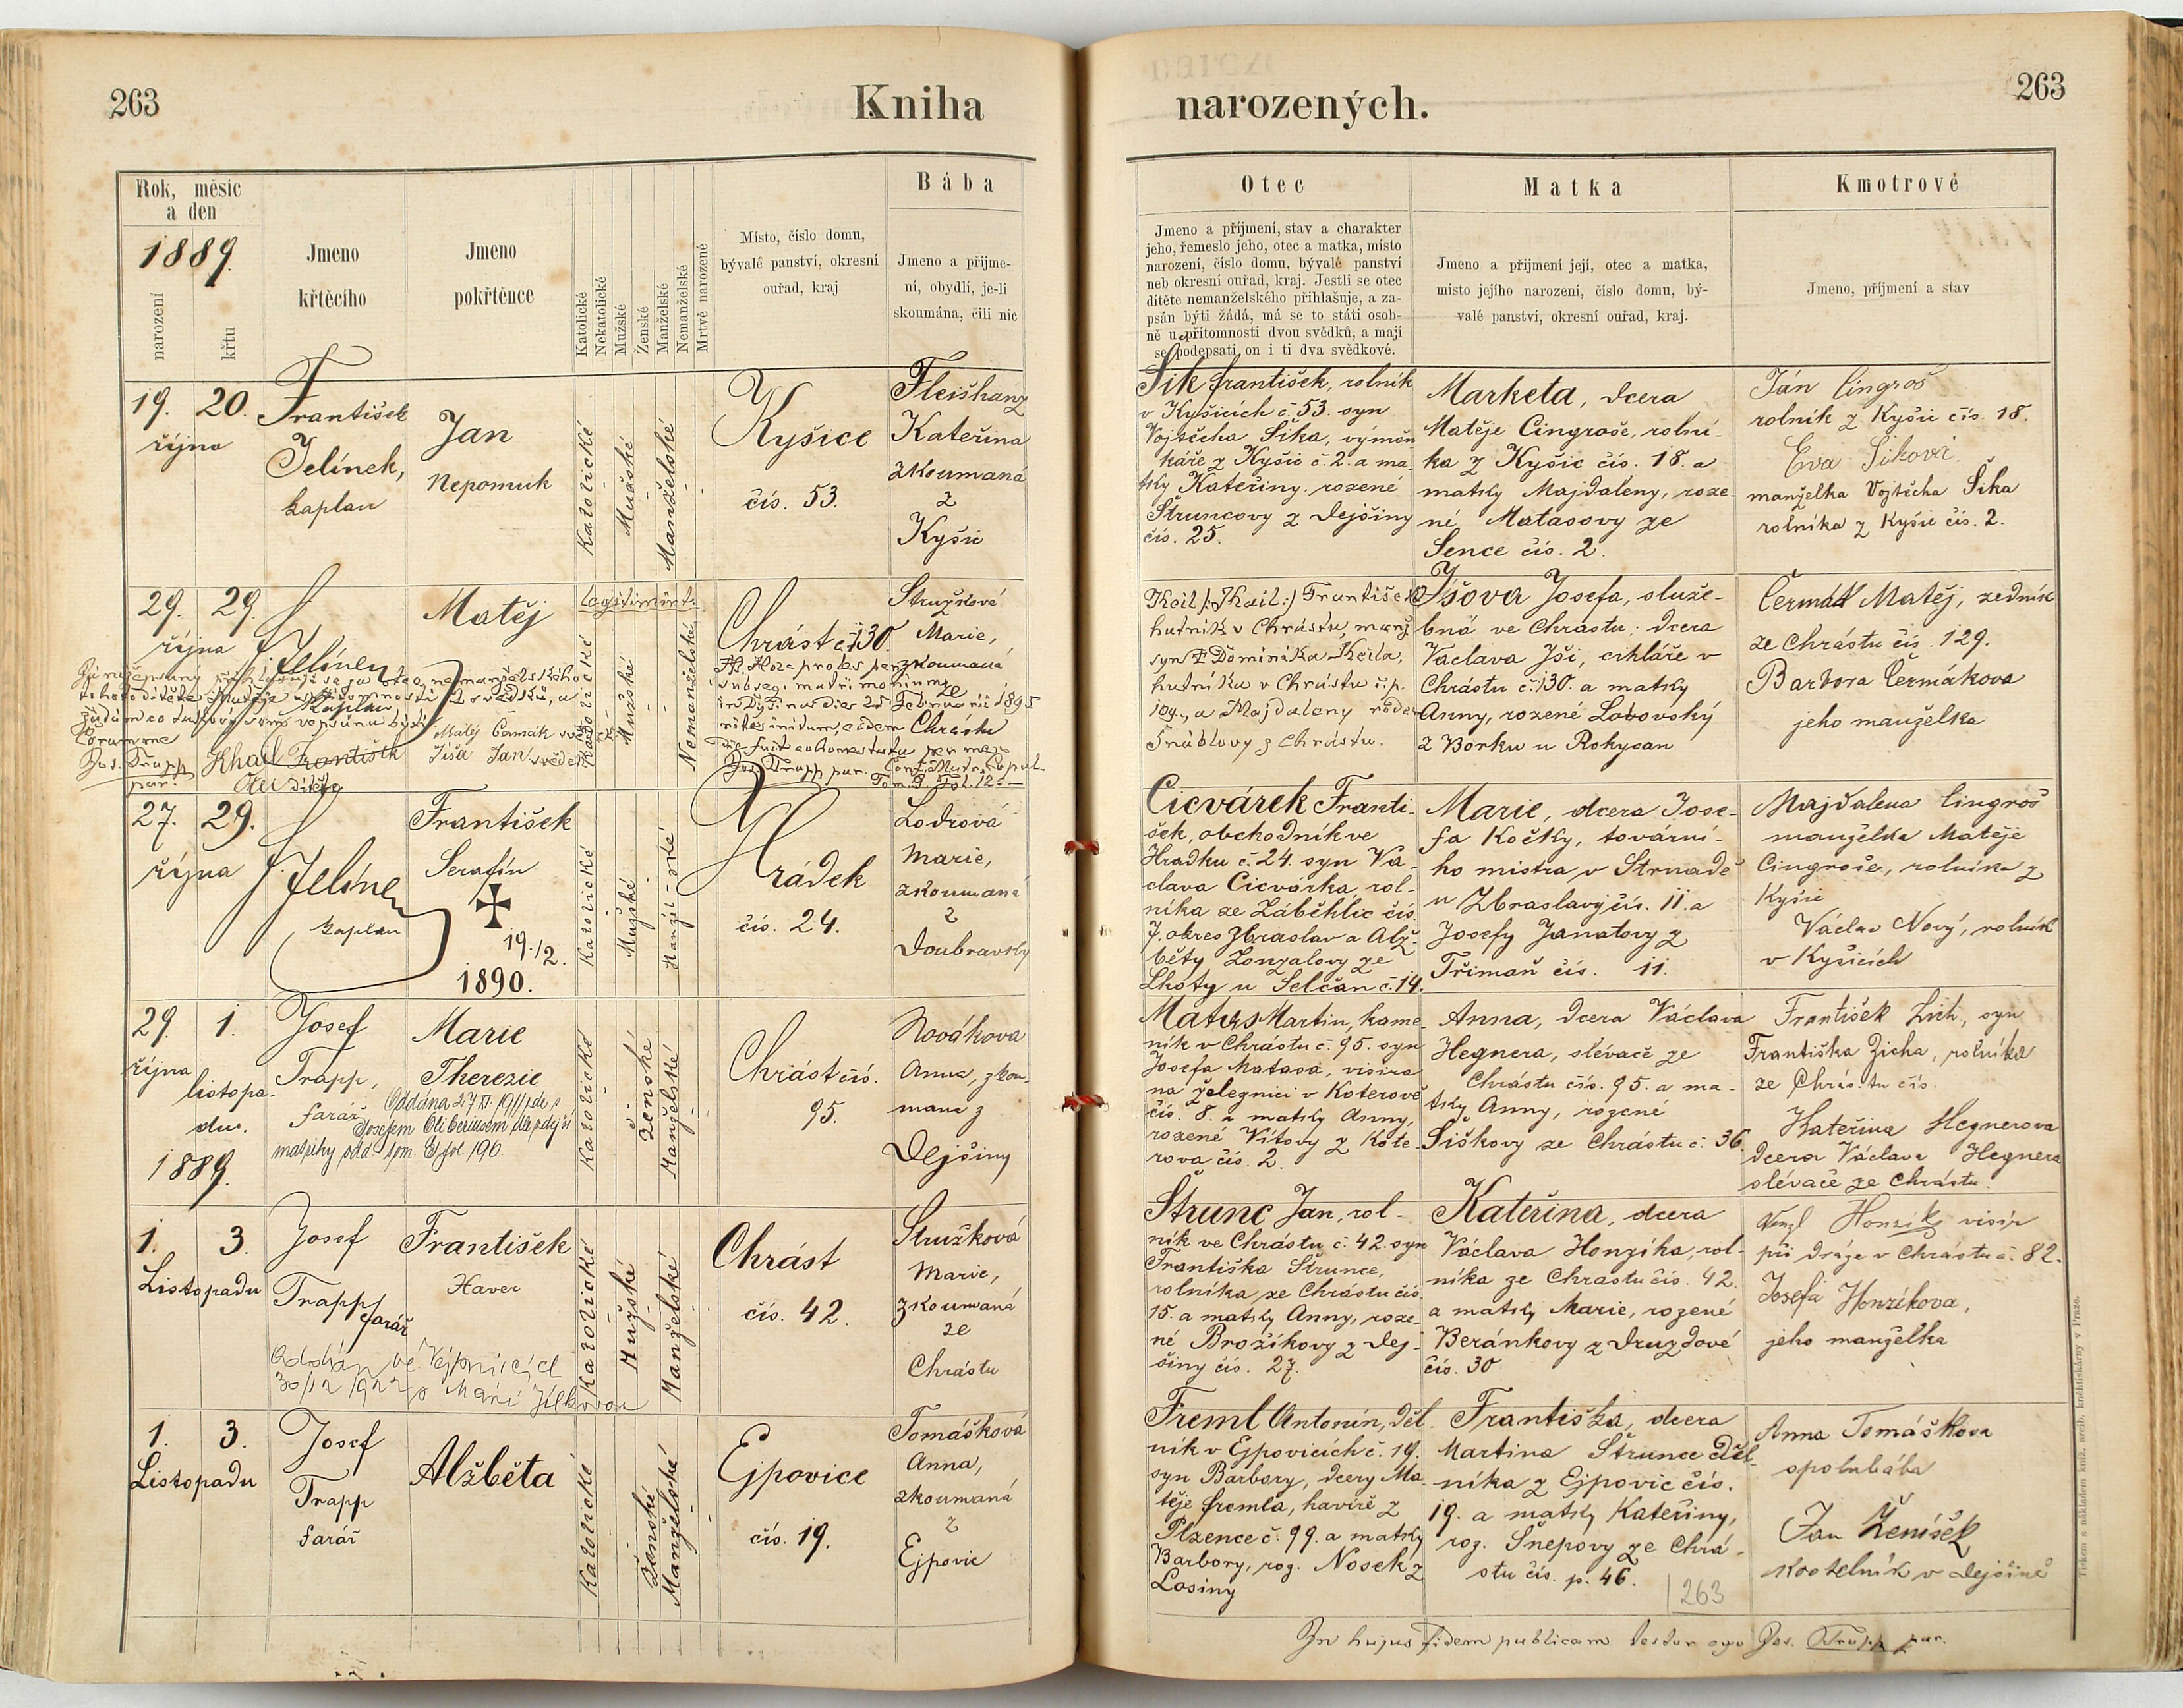 263
Kniha
narozených.
263
Rok, měsíc
a den
1889.
narození
křtu
Jmeno
křtěcího
Jmeno
pokřtěnce
Katolické
Nekatolické
Mužské
Ženské
Manželské
Nemanželské
Mrtvě narozené
Místo, číslo domu,
bývalé panství, okresní
ouřad, kraj
Bába
Jmeno a příjme-
ní, obydlí, je-li
skoumána, čili nic
Otec
Jmeno a příjmení, stav a charakter
jeho, řemeslo jeho, otec a matka, místo
narození, číslo domu, bývalé panství
neb okresní ouřad, kraj. Jestli se otec
dítěte nemanželského přihlašuje, a za-
psán býti žádá, má se to státi osob-
ně u přítomnosti dvou svědků, a mají
se podepsati on i ti dva svědkové.
Matka
Jmeno a příjmení její, otec a matka,
místo jejího narození, číslo domu, bý-
valé panství, okresní ouřad, kraj.
Kmotrové
Jmeno, příjmení a stav
19. 20.
října
František
Jelínek,
kaplan
Jan
Nepomuk
Katolické
Mužské
Manželské
Kyšice
čís. 53.
Fleišhanz
Kateřina
zkoumaná
z
Kyšic
Šik František, rolník
v Kyšicích č. 53. syn
Vojtěcha Šika, výměn
káře z Kyšic č. 2. a ma-
tky Kateřiny rozené
Štruncovy z Dejšiny
čís. 25.
Marketa, dcera
Matěje Cingroše, rolní-
ka z Kyšic čís. 18. a
matky Majdaleny, roze-
né Matasovy ze
Sence čís. 2.
Ján Cingroš
rolník z Kyšic čís. 18.
Eva Šiková
manželka Vojtěcha Šika
rolníka z Kyšic čís. 2.
29. 29.
října
Jelínek
kaplan
Matěj
legitimint:
Katolické
Mužské
Nemanželské
Chrást č. 130.
Stružkové
Marie,
zkoumaná
ze
Chrástu
Coram me
Jos. Trapp
par.
Khail František
Otec dítěte
Matěj Čermák svědek
Jiša Jan svědek
Jos. Trapp par.
Tom. 9. Fol. 12.
Kcil /: Khail :/ František
hutník v Chrástu, manž.
syn † Dominika Kcila,
hutníka v Chrástu č. p.
109., a Majdaleny rozen
Šnáblovy z Chrástu.
Jíšova Josefa, služe-
bná ve Chrástu; dcera
Václava Jíši, cihláře v
Chrástu č. 130. a matky
Anny, rozené Lovovský
z Borku u Rokycan
Čermák Matěj, zedník
ze Chrástu čís. 129.
Barbora Čermákova
jeho manželka
27. 29.
října
Jelínek
kaplan
František
Serafín
19./2.
1890.
Katolické
Mužské
Manželské
Hrádek
čís. 24.
Lodrová
Marie,
zkoumaná
z
Doubravky
Cicvárek Franti-
šek, obchodník ve
Hradku č. 24. syn Vá-
clava Cicvárka, rol-
níka ze Záběhlic čís.
7. okres Zbraslav a Alž-
běty Zonzalovy ze
Lhoty u Selčan č. 14.
Marie, dcera Jose-
fa Kočky, tovární-
ho mistra v Strnadě
u Zbraslavy čís. 11. a
Josefy Janatovy z
Třimaň čís. 11.
Majdalena Cingroš
manželka Matěje
Cingroše, rolníka z
Kyšic
Václav Nový, rolník
v Kyšicích
29. 1.
října
listopa-
du.
1889.
Josef
Trapp,
farář
Marie
Therezie
Oddána 27/XI. 1911 zde s
Josefem Oliberiusem, dle zdejší
matriky odd. tom. E fol 196.
Katolické
Ženské
Manželské
Chrást čís.
95.
Nováková
Anna, zkou-
maná z
Dejšiny
Matas Martin, kame-
ník v Chrástu č. 95. syn
Josefa Matasa, visira
na železnici v Koterově
čís. 8. a matky Anny,
rozené Vítovy z Kote-
rova čís. 2.
Anna, dcera Václava
Hegnera, slévače ze
Chrástu čís. 95. a ma-
tky Anny, rozené
Šiškovy ze Chrástu č. 36.
František Zich, syn
Františka Zicha, rolníka
ze Chrástu čís.
Kateřina Hegnerova
dcera Václava Hegnera
slévače ze Chrástu.
1. 3.
Listopadu
Josef
Trapp
farář
František
Xaver
Oddán ve Vejprnicích
30/12 1922 s Marií Jílkovou
Katolické
Mužské
Manželské
Chrást
čís. 42.
Stružková
Marie,
zkoumaná
ze
Chrástu
Štrunc Jan, rol-
ník ve Chrástu č. 42. syn
Františka Štrunce,
rolníka ze Chrástu čís.
15. a matky Anny, roze-
né Brožíkovy z Dej-
šiny čís. 27.
Kateřina, dcera
Václava Honzíka, rol-
níka ze Chrastu čís. 42.
a matky Marie, rozené
Beránkovy z Druzdové
čís. 30
Honzík visír
při dráze v Chrástu č. 82.
Josefa Honzíkova,
jeho manželka
1. 3.
Listopadu
Josef
Trapp
farář
Alžběta
Katolické
Ženské
Manželské
Ejpovice
čís. 19.
Tomášková
Anna,
zkoumaná
z
Ejpovic
Freml Antonín, děl-
ník v Ejpovicích č. 19.
syn Barbory, dcery Ma-
těje Fremla, havíře z
Plzence č. 99. a matky
Barbory, roz. Nosek z
Losiny
Františka, dcera
Martina Štrunce děl-
níka z Ejpovic čís.
19. a matky Kateřiny,
roz. Šnepovy ze Chrá-
stu čís. p. 46.
Anna Tomáškova
spolubába
Jan Ženíšek
kostelník v Dejšině
263
In hujus fidem publicam testor ego Jos. Trapp par.